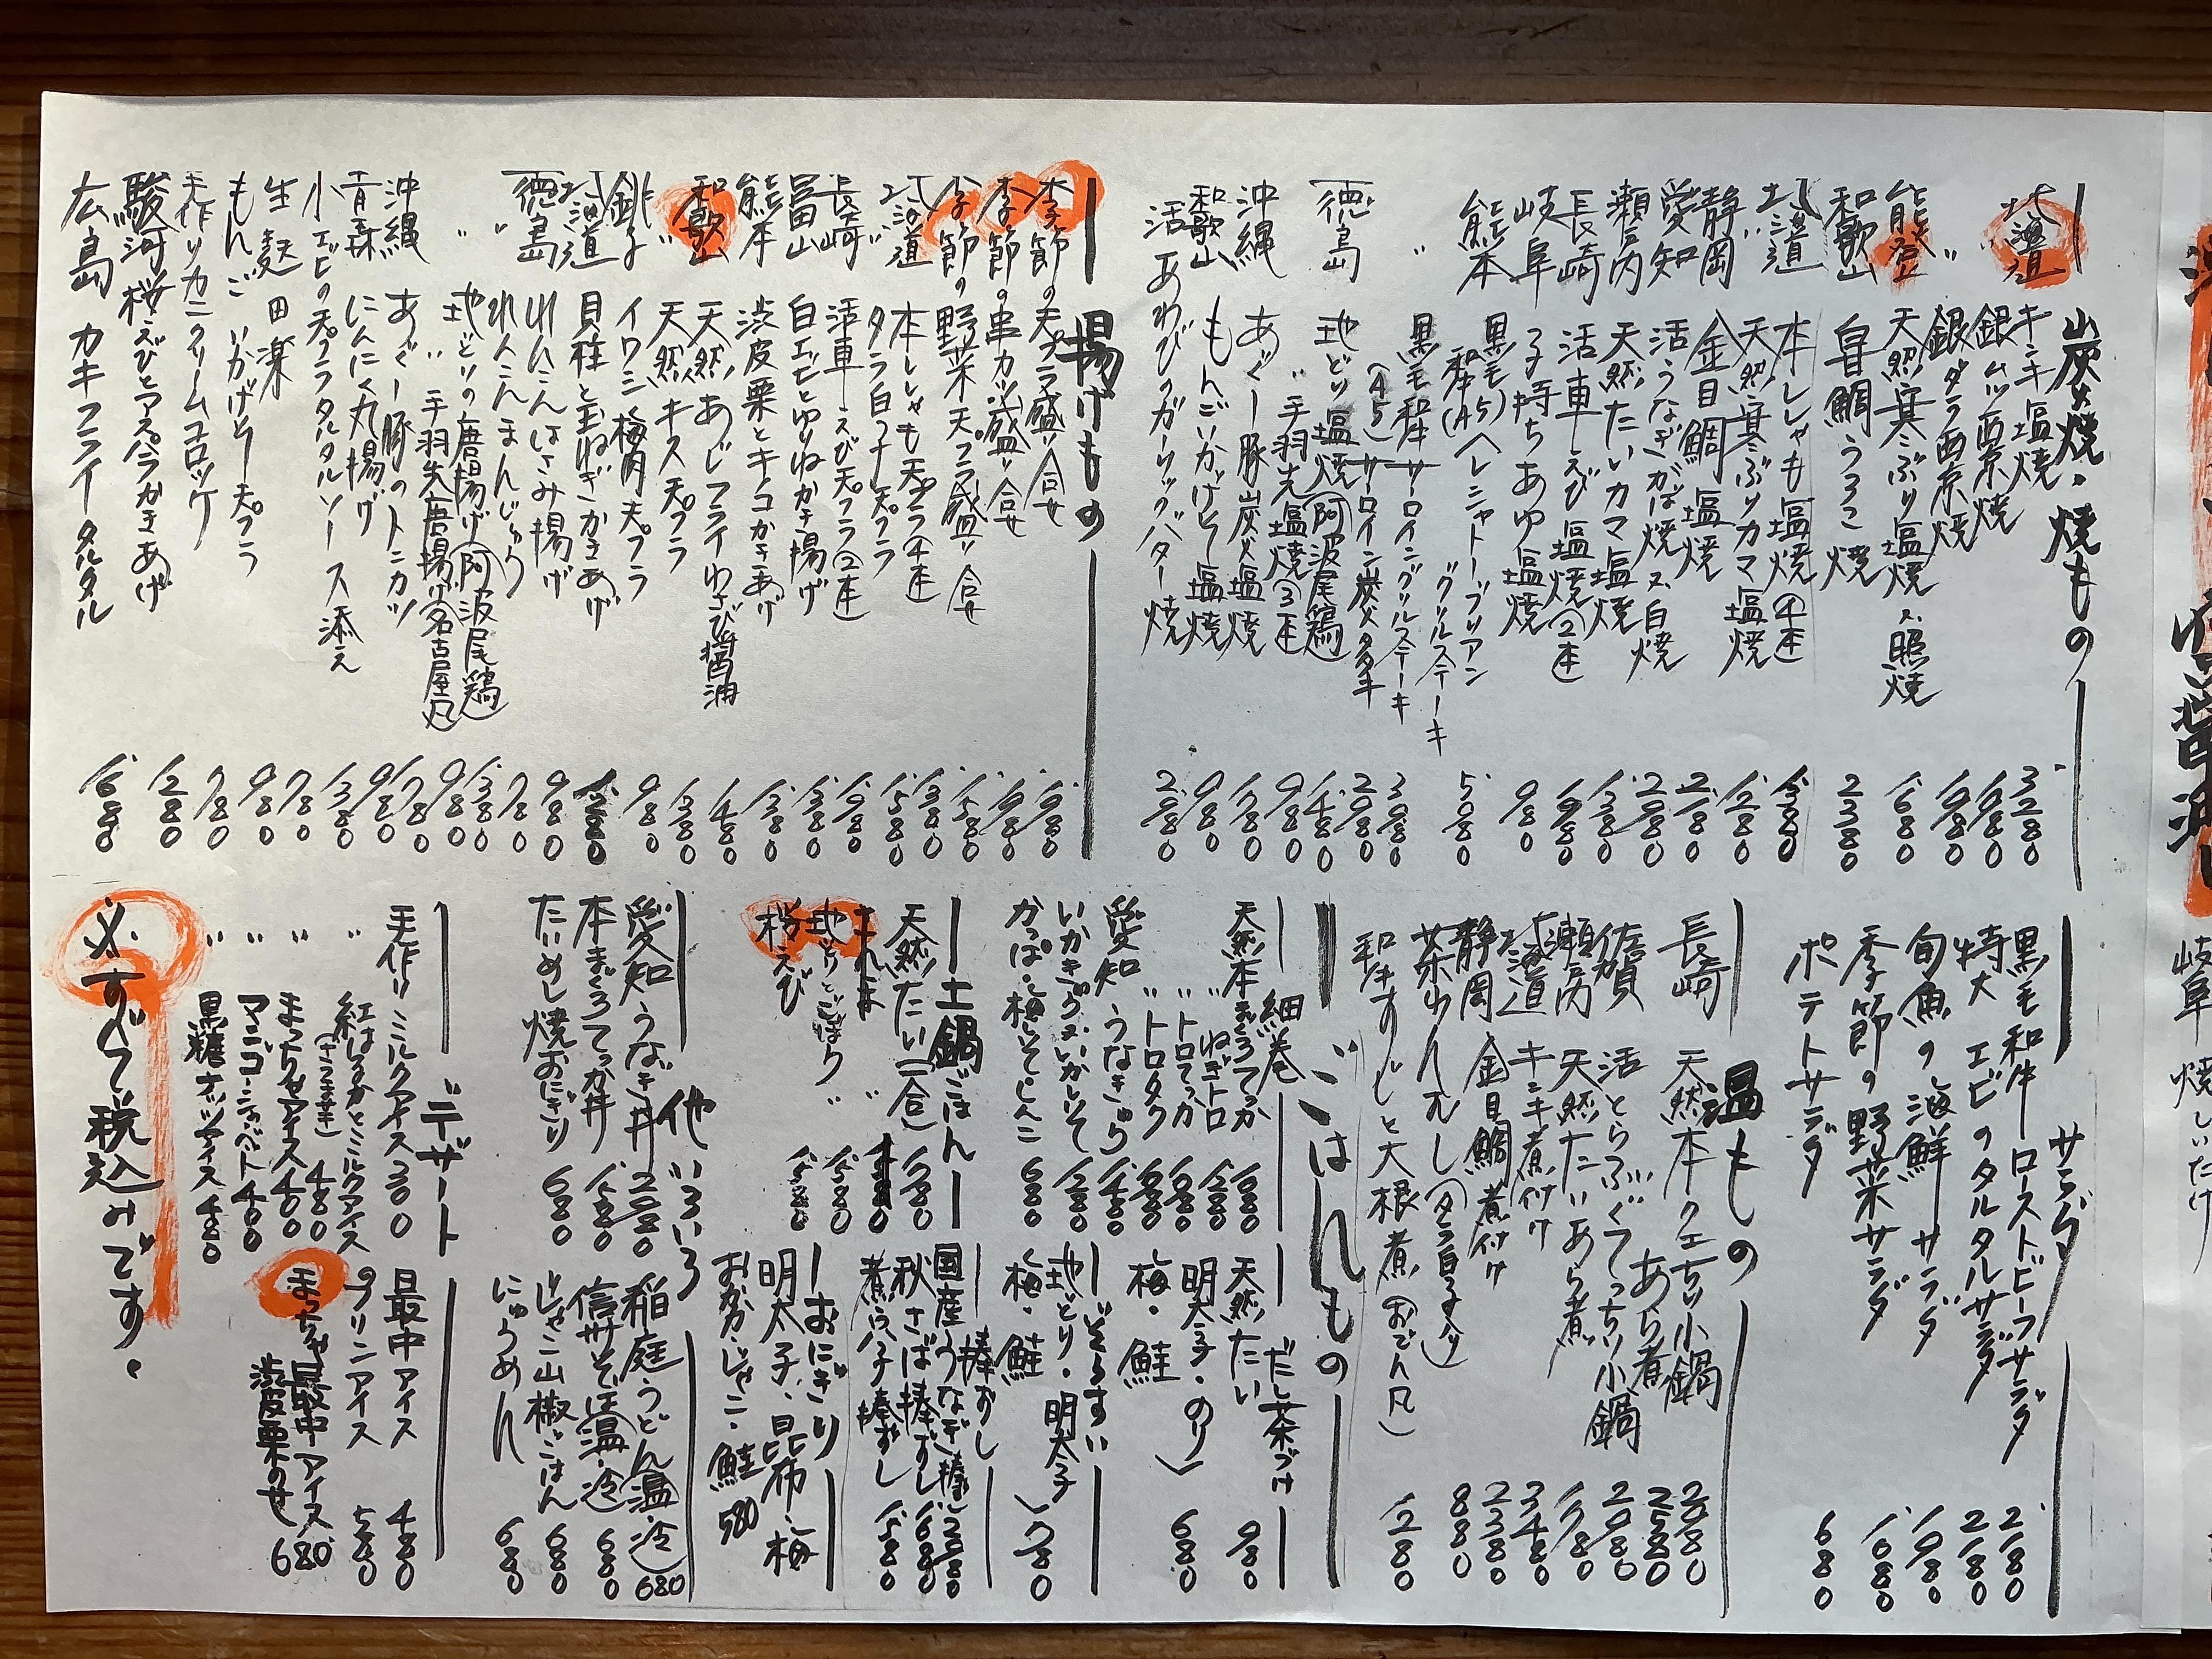 炭火焼・焼もの
北海道 キンキ塩焼 3280
〃 銀ムツ西京焼 1980
銀ダラ西京焼 1980
能登 天然寒ぶり塩焼又照焼 1680
和歌山 甘鯛うろこ焼 2380
北海道 本ししゃも塩焼④本 1380
〃 天然寒ぶりカマ塩焼 1280
静岡 金目鯛塩焼 2180
愛知 活うなぎかば焼又白焼 2980
瀬戸内 天然たいカマ塩焼 1380
長崎 活車えび塩焼②本 1980
岐阜 子持ちあゆ塩焼 980
熊本 黒毛和牛(A5)ヘレシャトーブリアングリルステーキ 5080
〃 黒毛和牛サーロイングリルステーキ 3080
(A5)サーロイン炭火タタキ 2980
徳島 地どり塩焼(阿波尾鶏) 1480
〃手羽先塩焼③本 980
沖縄 あぐー豚炭火塩焼 1780
和歌山 もんごいかげそ塩焼 980
活あわびのガーリックバター焼 2980
揚げもの
季節の天プラ盛り合せ 1980
季節の串カツ盛り合せ 1980
季節の野菜天プラ盛り合せ 1580
北海道 本ししゃも天プラ④本 1380
〃 タラ白子天プラ 1580
長崎 活車えび天プラ②本 1980
富山 白エビとゆりねかき揚げ 1380
熊本 渋皮栗とキノコかきあげ 1380
和歌山 天然あじフライわさび醤油 1480
〃 天然キス天プラ 1380
銚子 イワシ梅肉天プラ 980
北海道 貝柱と玉ねぎかきあげ 1380
れんこんはさみ揚げ 980
れんこんまんじゅう 780
徳島 地どりの唐揚げ(阿波尾鶏) 1380
〃 〃手羽先唐揚げ(名古屋風) 980
沖縄 あぐー豚のトンカツ 1780
青森 にんにく丸揚げ 980
小エビの天プラタルタルソース添え 1380
生麩田楽 780
もんごいかげそ天プラ 980
手作りカニクリームコロッケ 780
駿河桜えびとアスパラかきあげ 1280
広島 カキフライタルタル 1680
サラダ
黒毛和牛ローストビーフサラダ 2180
特大エビのタルタルサラダ 2180
旬魚の海鮮サラダ 1980
季節の野菜サラダ 1080
ポテトサラダ 680
温もの
長崎 天然本クエちり小鍋 2980
あら煮 2580
佐賀 活とらふぐてっちり小鍋 2980
瀬戸内 天然たいあら煮 1780
北海道 キンキ煮付け 3480
静岡 金目鯛煮付け 2380
茶わんむし(タラ白子入り) 880
和牛すじと大根煮(おでん風) 1280
ごはんもの
細巻
天然本まぐろてっか 1680
〃 ねぎトロ 1280
〃トロてっか 1680
〃トロタク 1680
愛知 うなきゅう 1480
いかきゅう・いかしそ 1280
かっぱ・梅しそ・しんこ 680
だし茶づけ
天然たい 980
明太子・のり
梅・鮭 680
土鍋ごはん
天然たい(一合) 1780
地どりとごぼう〃 1580
桜えび 1580
ぞうすい
地どり・明太子
梅・鮭 780
棒ずし
国産うなぎ棒ずし 2980
秋さば棒ずし 1680
煮穴子棒ずし 1580
おにぎり
明太子・昆布・梅
おかか・じゃこ・鮭 580
他いろいろ
愛知 うなぎ丼 2980
本まぐろてっか丼 1580
たいめし焼おにぎり 680
稲庭うどん(温・冷) 680
信州そば(温・冷) 680
じゃこ山椒ごはん 680
にゅうめん 680
デザート
手作り ミルクアイス 300
〃 紅はるかとミルクアイス(さつまいも) 480
〃 まっちゃアイス 400
〃 マンゴーシャーベット 400
〃 黒糖ナッツアイス 480
最中アイス 480
プリンアイス 580
まっちゃ最中アイス 渋皮栗のせ 680
※すべて税込みです。
岐阜 焼しいたけ